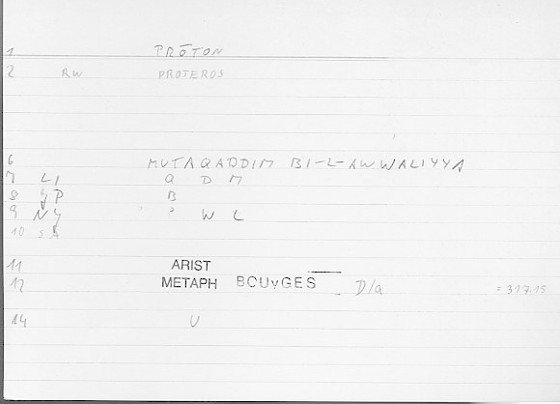 1 PRŌTON
2 RW PROTEROS
6 MUTAQADDIM BI-L-AWWALIYYA
7 LI Q D M
8 YP B
9 NY ʾ W L
10 SA
11 ARIST
12 METAPH BOUyGES D/a = 317.15
14 V